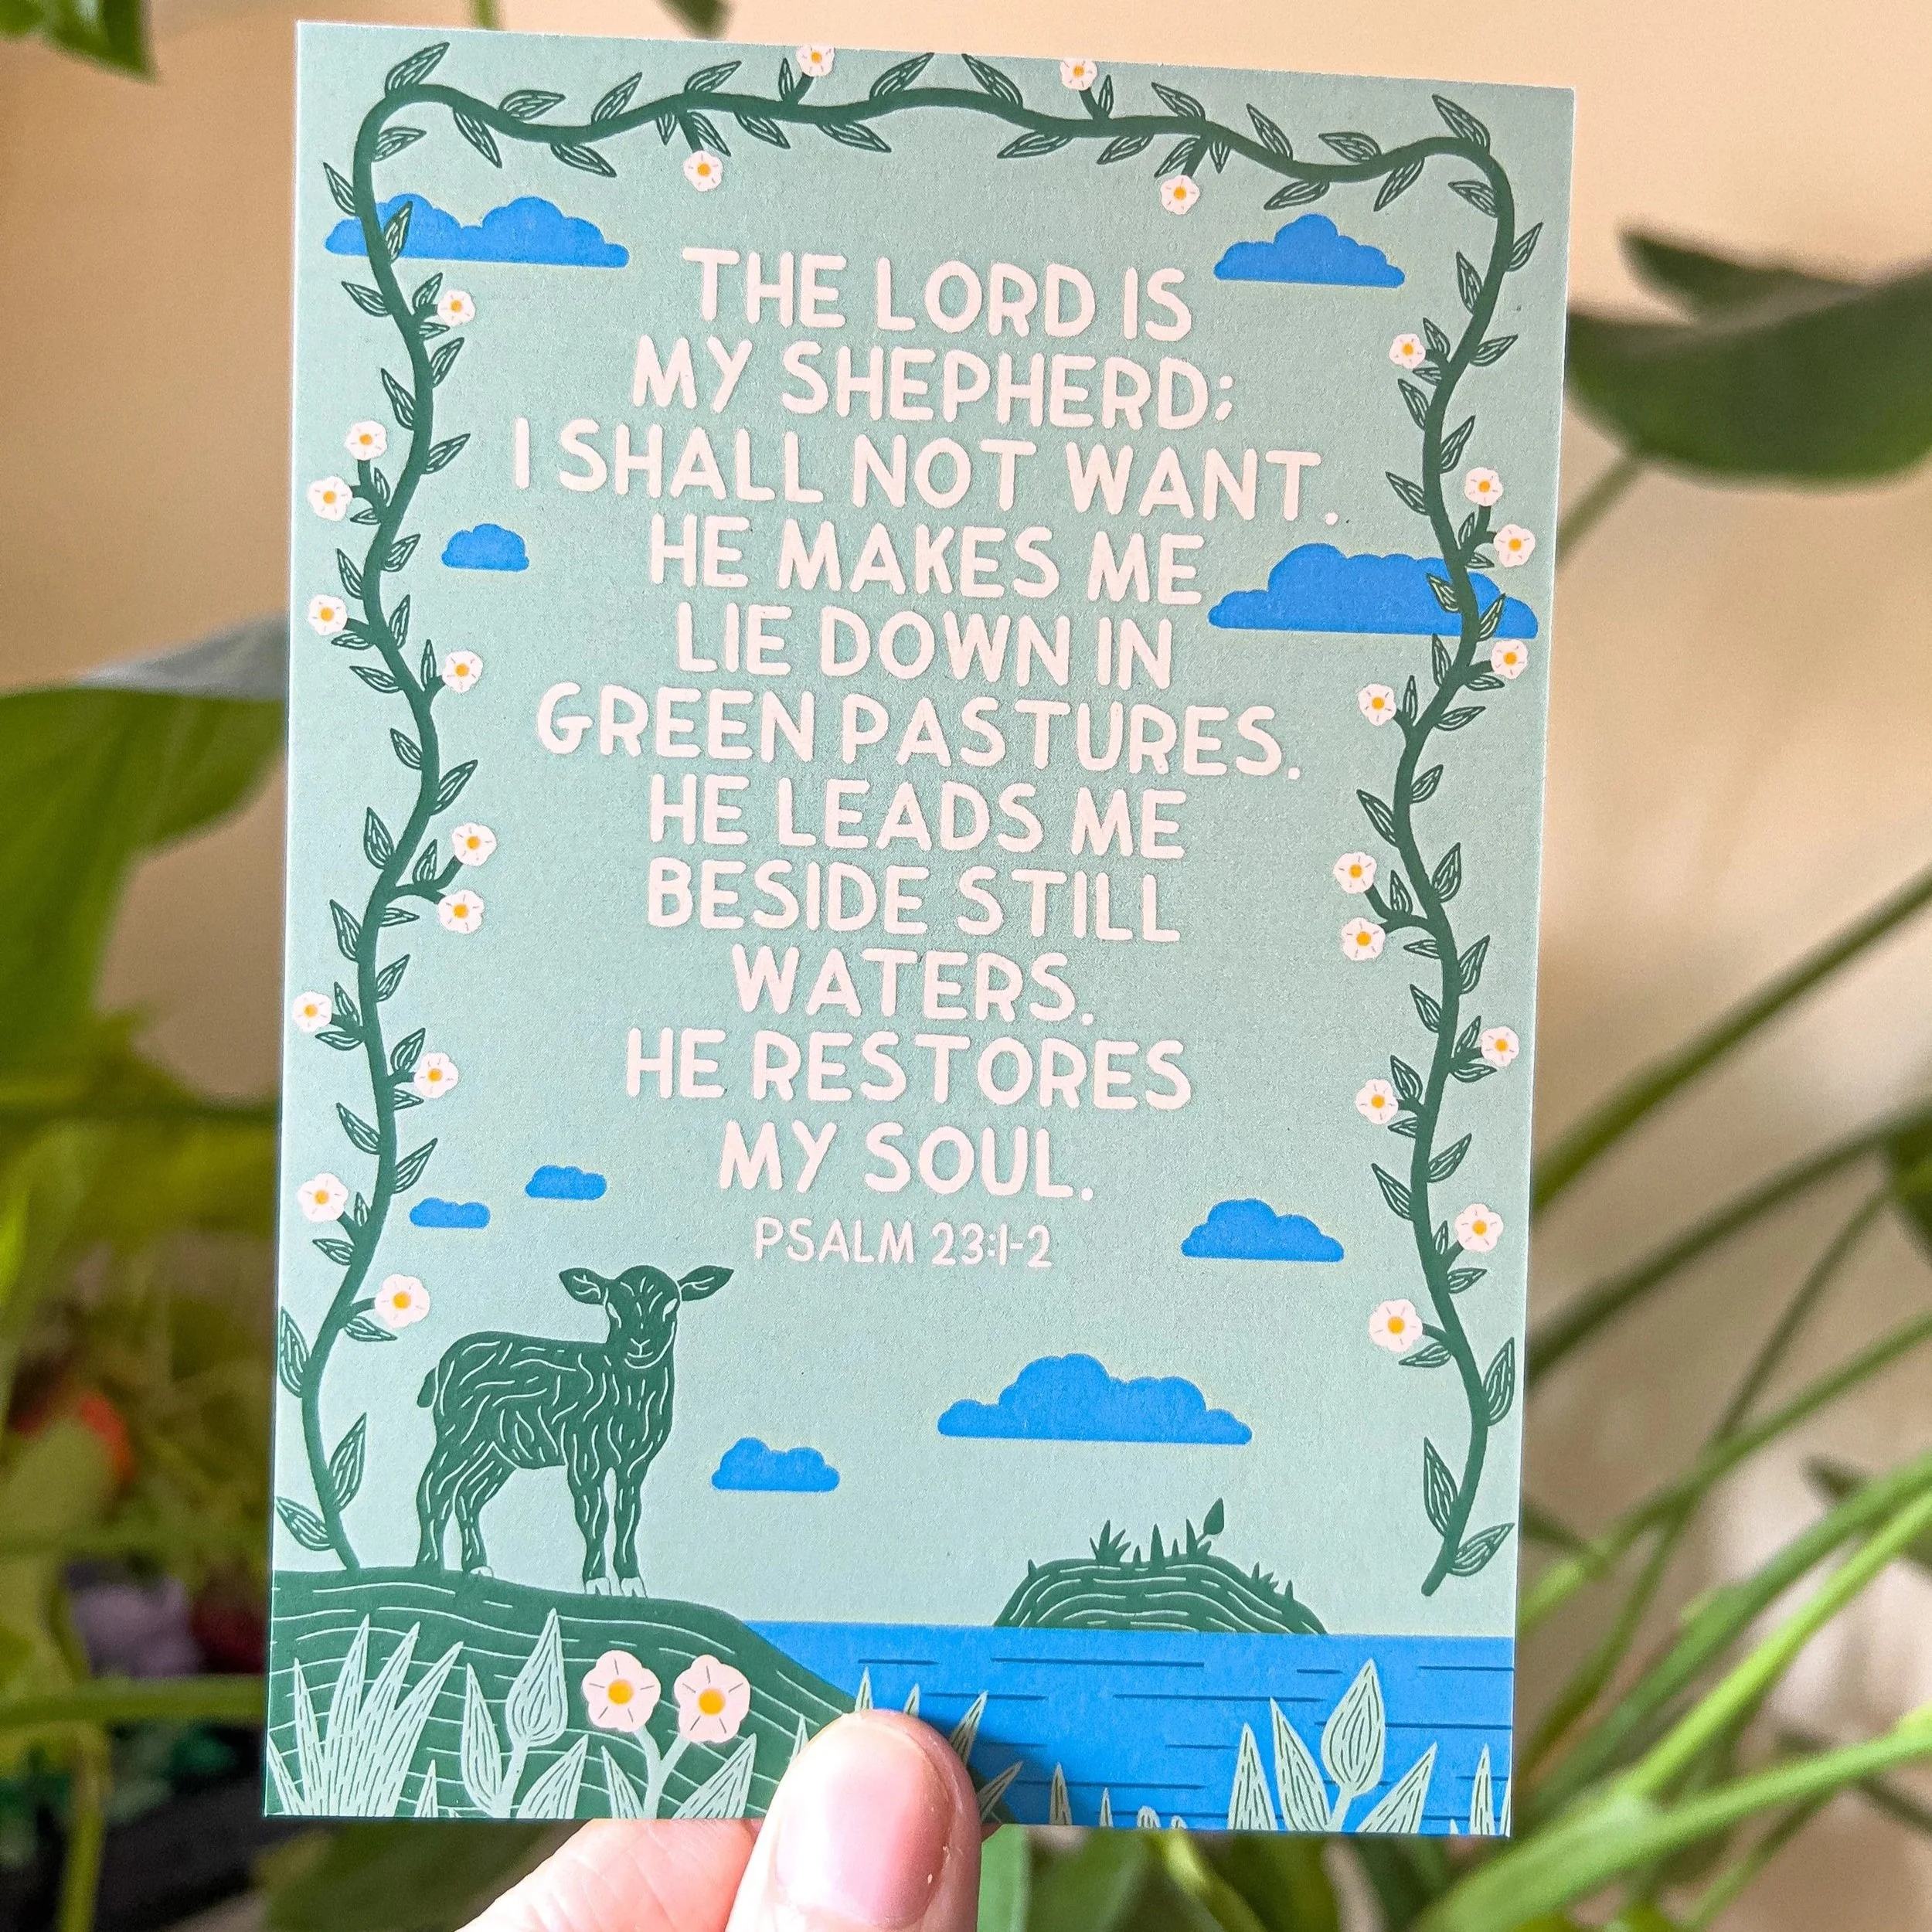 THE LORD IS
MY SHEPHERD;
I SHALL NOT WANT.
HE MAKES ME
LIE DOWN IN
GREEN PASTURES.
HE LEADS ME
BESIDE STILL
WATERS.
HE RESTORES
MY SOUL.
PSALM 23:1-2